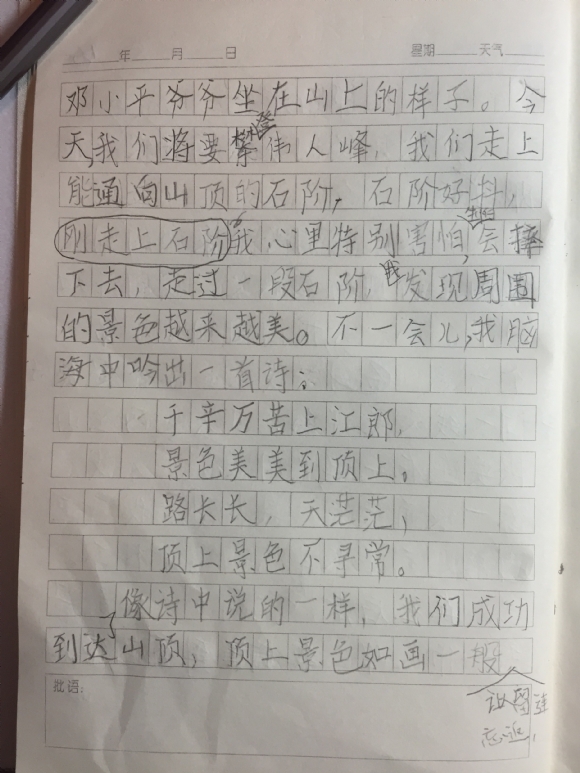 年 月 日 星期 天气
邓小平爷爷坐在山上的样子。今
天,我们将要攀登伟人峰,我们走上
能通向山顶的石阶,石阶好抖,
刚走上石阶,我心里特别害怕,生怕会摔
下去,走过一段石阶,我发现周围
的景色越来越美。不一会儿,我脑
海中吟出一首诗:
千辛万苦上江郎,
景色美美到顶上。
路长长,天茫茫,
顶上景色不寻常。
像诗中说的一样,我们成功
到达了山顶,顶上景色如画一般,
让留连
忘返,
批语: